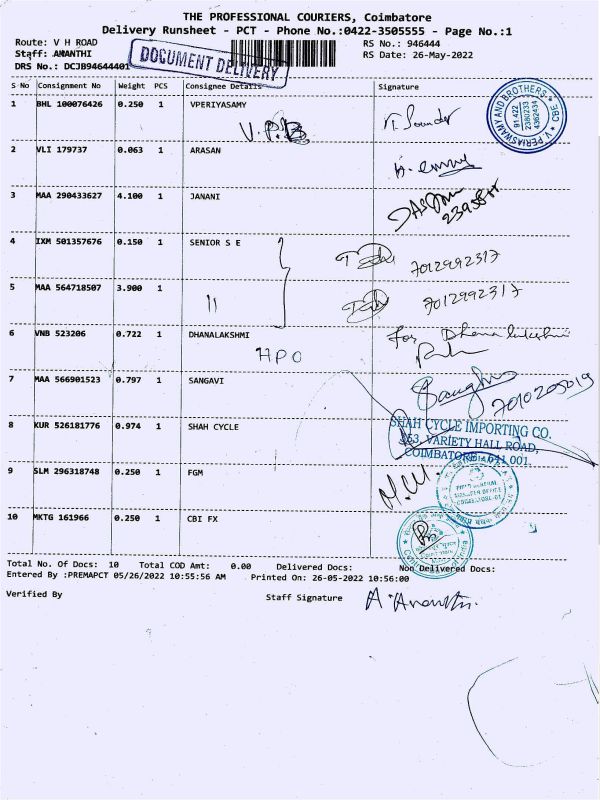 THE PROFESSIONAL COURIERS, Coimbatore
Delivery Runsheet - PCT - Phone No.:0422-3505555 - Page No.:1
Route: V H ROAD
RS No.: 946444
Staff: AMANTHI
RS Date: 26-May-2022
DRS No.: DCJB94644401
DOCUMENT DELIVERY
S No Consignment No Weight PCS Consignee Details Signature
1 BHL 100076426 0.250 1 VPERIYASAMY
V.P.B
V. PERIASWAMY AND BROTHERS CBE
2380233
4362434
2 VLI 179737 0.063 1 ARASAN
3 MAA 290433627 4.100 1 JANANI
4 IXM 501357676 0.150 1 SENIOR S E
7012992317
5 MAA 564718507 3.900 1 "
7012992317
6 VNB 523206 0.722 1 DHANALAKSHMI
For Dhanalakshmi
HPO
7 MAA 566901523 0.797 1 SANGAVI
7010205019
8 KUR 526181776 0.974 1 SHAH CYCLE
SHAH CYCLE IMPORTING CO.
353, VARIETY HALL ROAD,
COIMBATORE - 641 001.
9 SLM 296318748 0.250 1 FGM
10 MKTG 161966 0.250 1 CBI FX
Total No. Of Docs: 10 Total COD Amt: 0.00 Delivered Docs: Non Delivered Docs:
Entered By :PREMAPCT 05/26/2022 10:55:56 AM Printed On: 26-05-2022 10:56:00
Verified By Staff Signature A. Ananthi